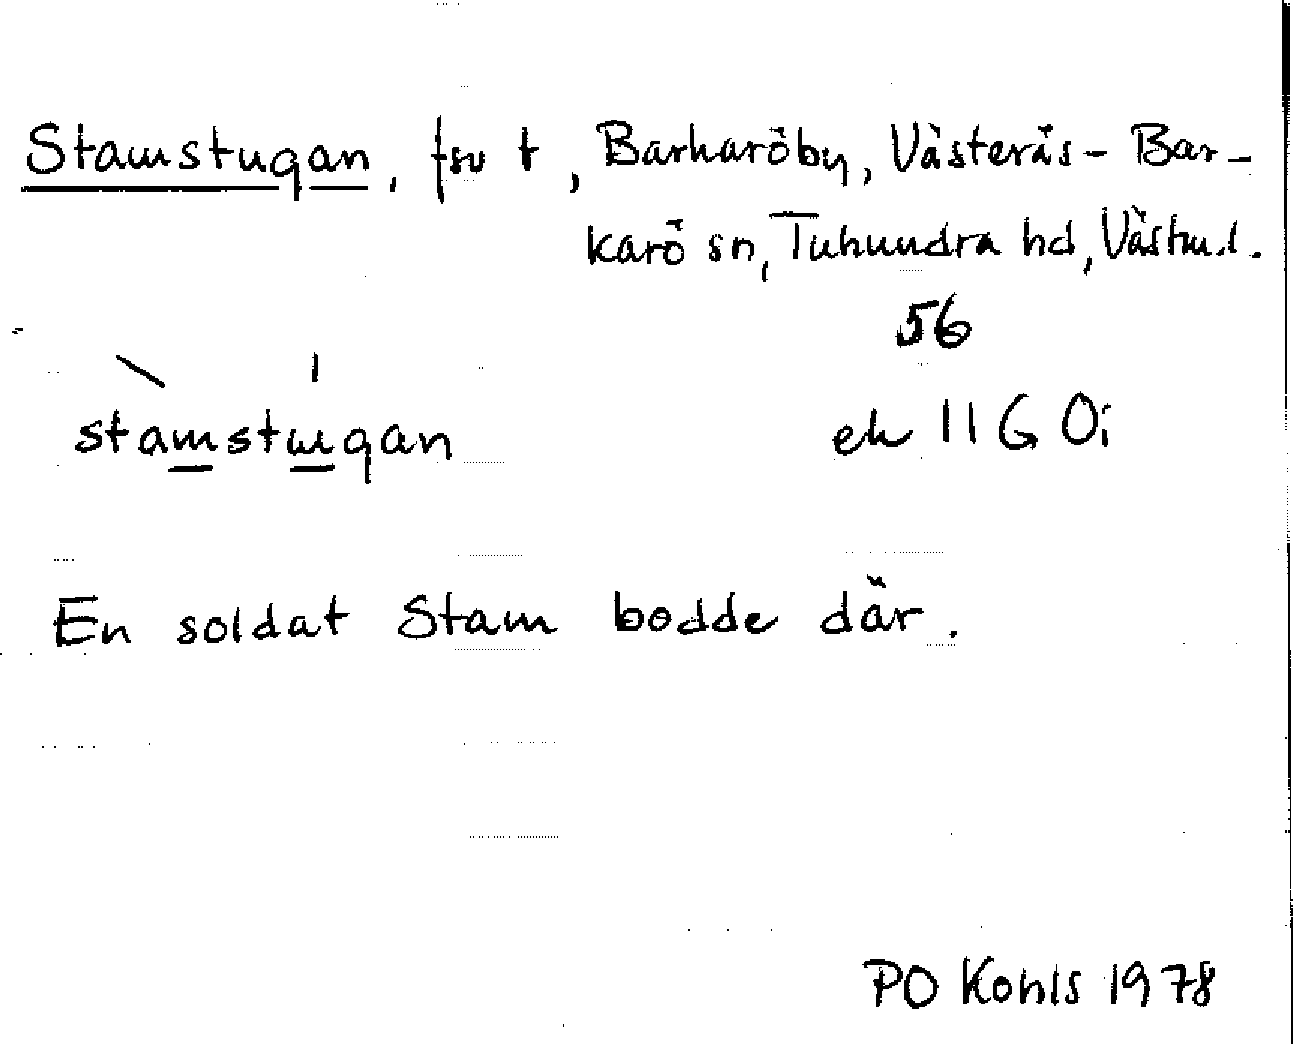 Stamstugan, fsv t, Barkaröby, Västerås-Bar-
karö sn, Tuhundra hd, Västm.l.
56
stamstugan ek 11G 0i
En soldat Stam bodde där.
PO Kohls 1978